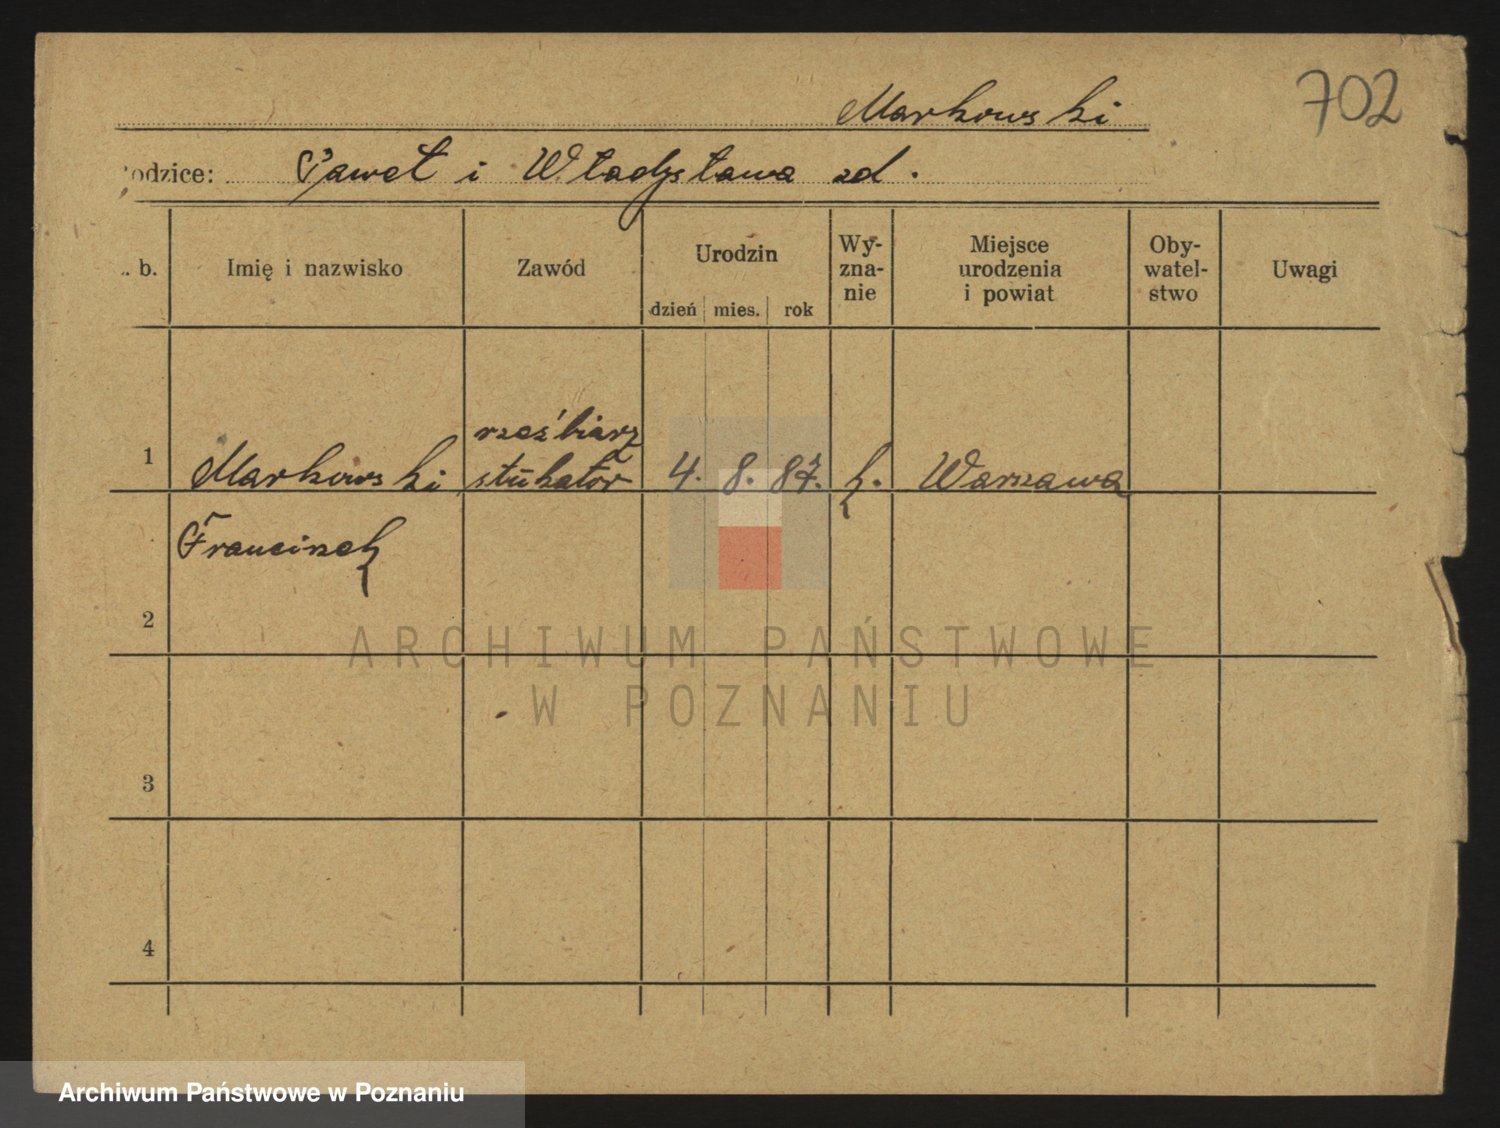 702
Markowski
odzice: Paweł i Władysława zd.
. b. Imię i nazwisko Zawód Urodzin dzień mies. rok Wy-
zna-
nie Miejsce
urodzenia
i powiat Oby-
watel-
stwo Uwagi
rzeźbiarz
1 Markowski stukator 4. 8. 87. k. Warszawa
Franciszek
2
3
4
ARCHIWUM PAŃSTWOWE
W POZNANIU
Archiwum Państwowe w Poznaniu